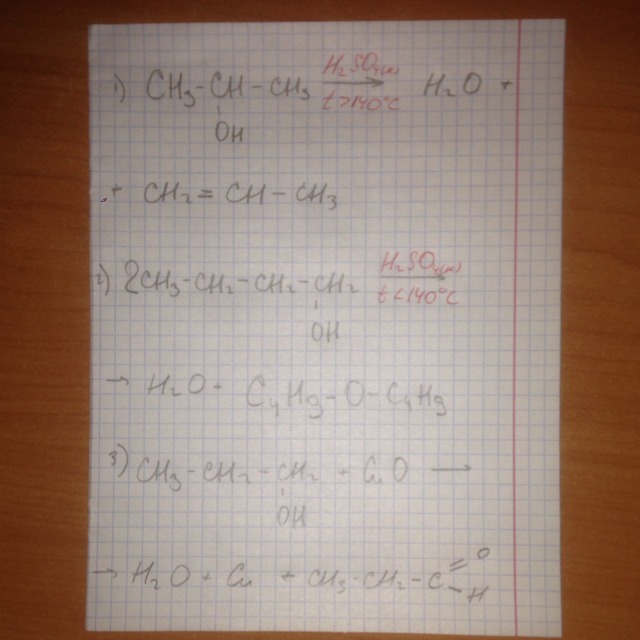 1) CH₃-CH-CH₃ H₂SO₄(к) t>140°C → H₂O +
OH
+ CH₂=CH-CH₃
2) 2CH₃-CH₂-CH₂-CH₂ H₂SO₄(к) t<140°C →
OH
→ H₂O + C₄H₉-O-C₄H₉
3) CH₃-CH₂-CH₂ + CuO →
OH
→ H₂O + Cu + CH₃-CH₂-C=O
-H